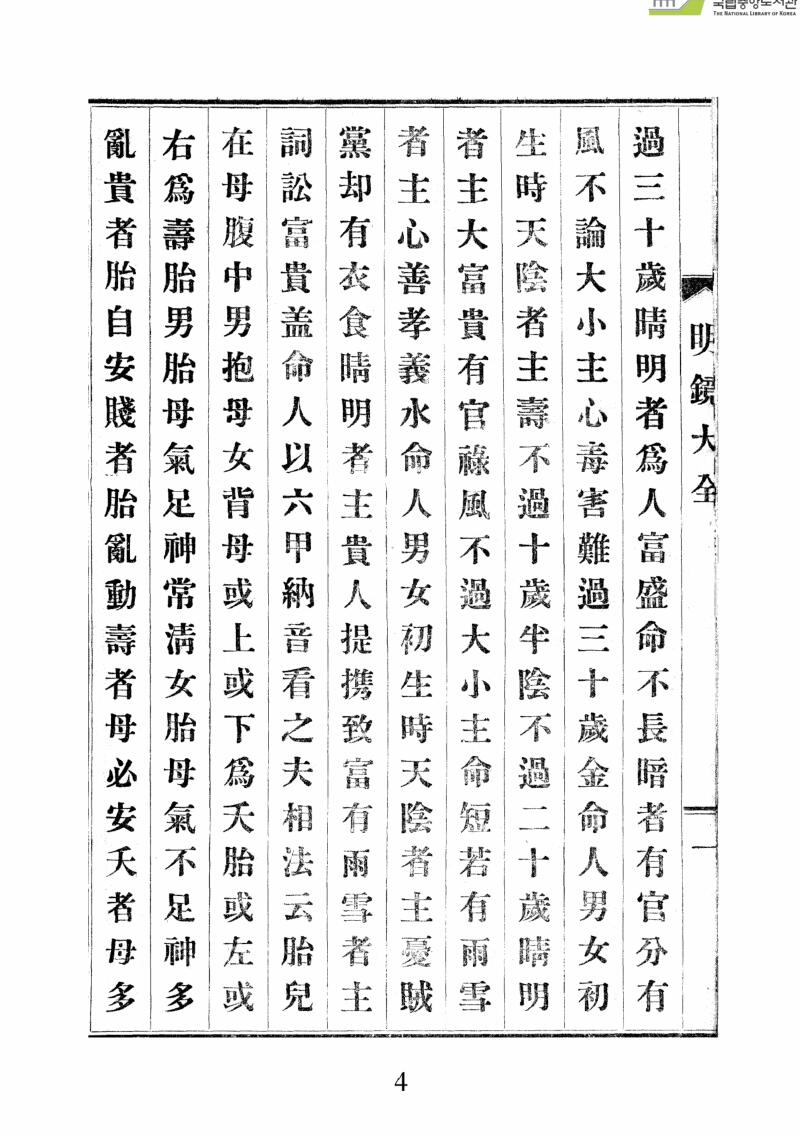 국립중앙도서관
THE NATIONAL LIBRARY OF KOREA
明鏡大全
一
過三十歲晴明者爲人富盛命不長暗者有官分有
風不論大小主心毒害難過三十歲金命人男女初
生時天陰者主壽不過十歲半陰不過二十歲晴明
者主大富貴有官祿風不過大小主命短若有雨雪
者主心善孝義水命人男女初生時天陰者主憂賊
黨却有衣食晴明者主貴人提携致富有雨雪者主
詞訟富貴盖命人以六甲納音看之夫相法云胎兒
在母腹中男抱母女背母或上或下爲夭胎或左或
右爲壽胎男胎母氣足神常淸女胎母氣不足神多
亂貴者胎自安賤者胎亂動壽者母必安夭者母多
4